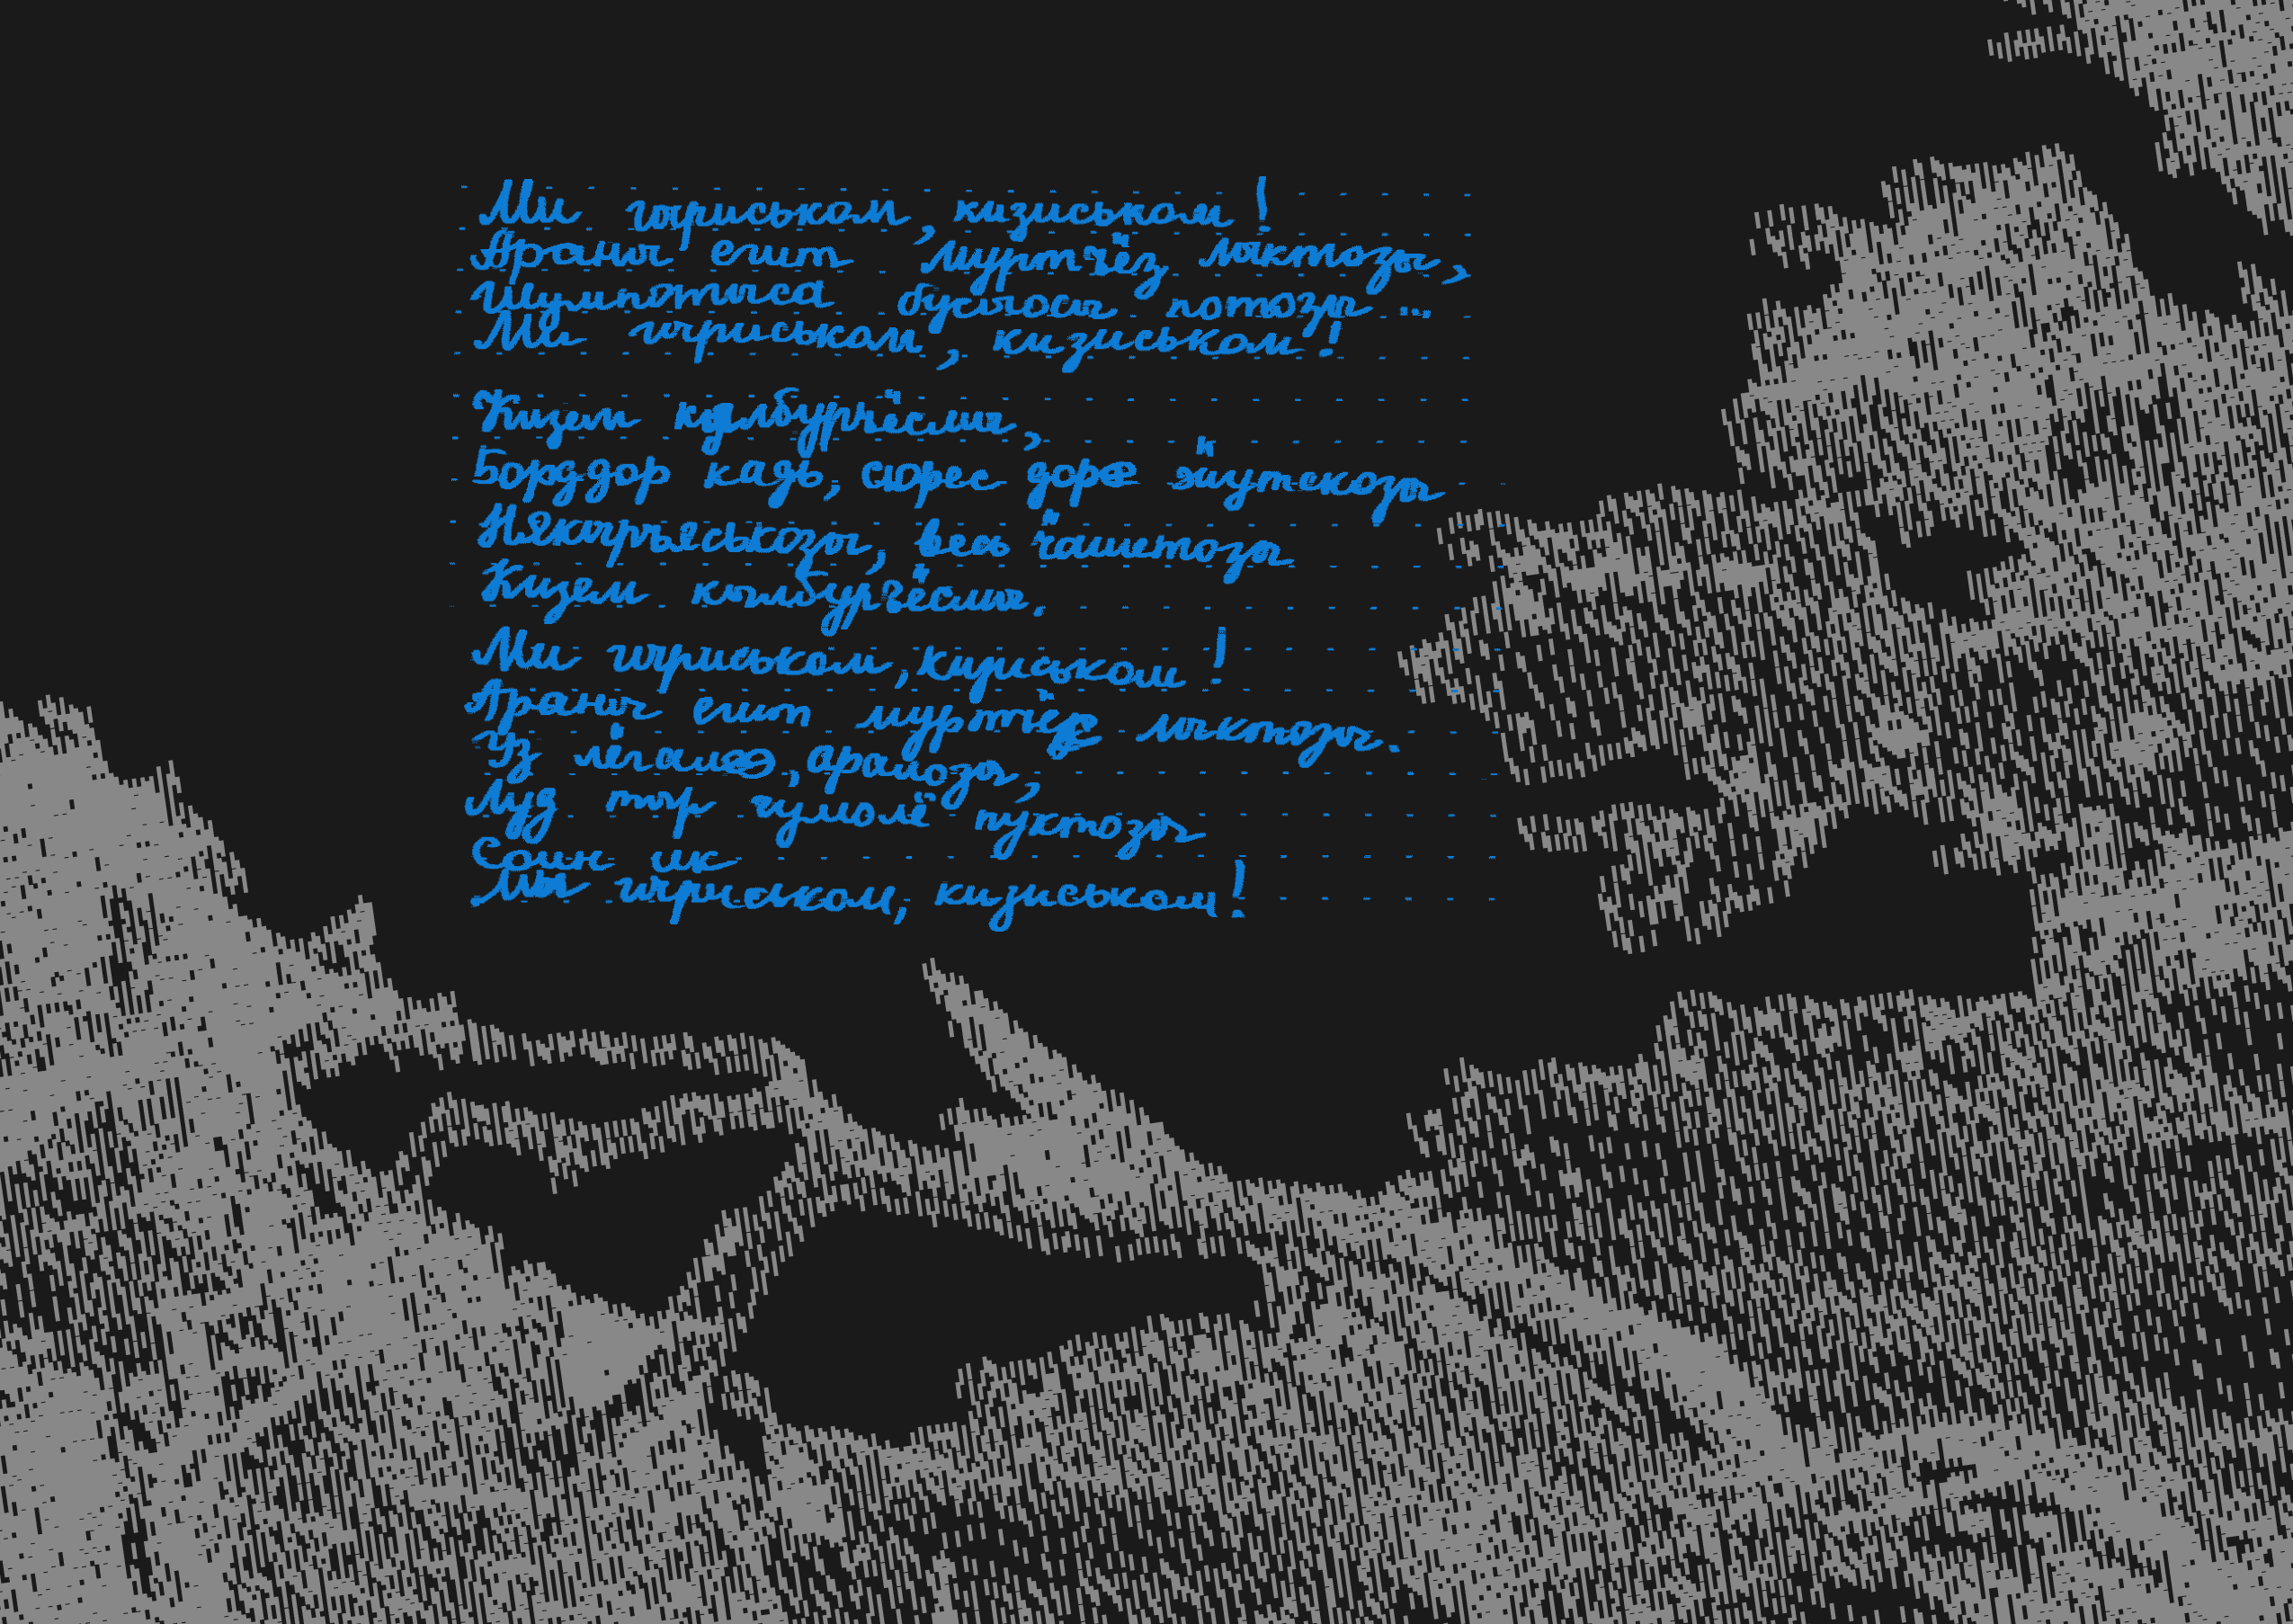 Ми гыриськом, кизиськом!
Араны егит муртъёз лыктозы,
Шумпотыса бусыосы потозы...
Ми гыриськом, кизиськом!
Кизем кылбуръёсмы,
Борддор кадь, сюрес доре ӝутскозы
Някыръяськозы, весь ӵашетозы
Кизем кылбуръёсмы.
Ми гыриськом, кизиськом!
Араны егит муртъёс лыктозы.
Уз лёгалэ, аралозы,
Луд тыр чумолё пуктозы
Соин ик
Ми гыриськом, кизиськом!